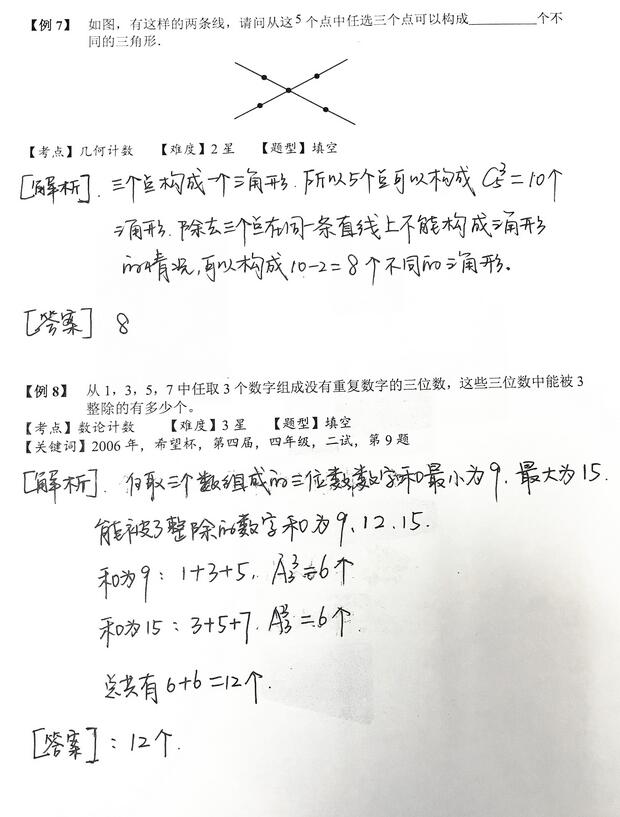 【例7】 如图，有这样的两条线，请问从这5个点中任选三个点可以构成__________个不
同的三角形．
【考点】几何计数 【难度】2星 【题型】填空
[解析]．三个点构成一个三角形．所以5个点可以构成 C₅³=10个
三角形．除去三个点在同一条直线上不能构成三角形
的情况，可以构成10-2=8个不同的三角形．
[答案] 8
【例8】 从1，3，5，7中任取3个数字组成没有重复数字的三位数，这些三位数中能被3
整除的有多少个。
【考点】数论计数 【难度】3星 【题型】填空
【关键词】2006年，希望杯，第四届，四年级，二试，第9题
[解析]．任取三个数组成的三位数数字和最小为9．最大为15．
能被3整除的数字和为9、12、15．
和为9：1+3+5．A₃³=6个
和为15：3+5+7．A₃³=6个．
总共有6+6=12个．
[答案]：12个．